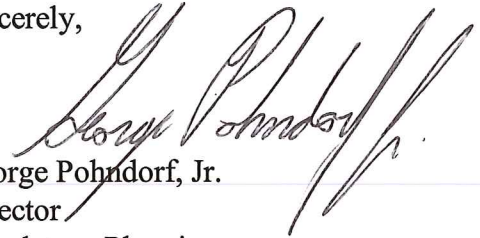 cerely,
George Pohndorf Jr.
orge Pohndorf, Jr.
ector